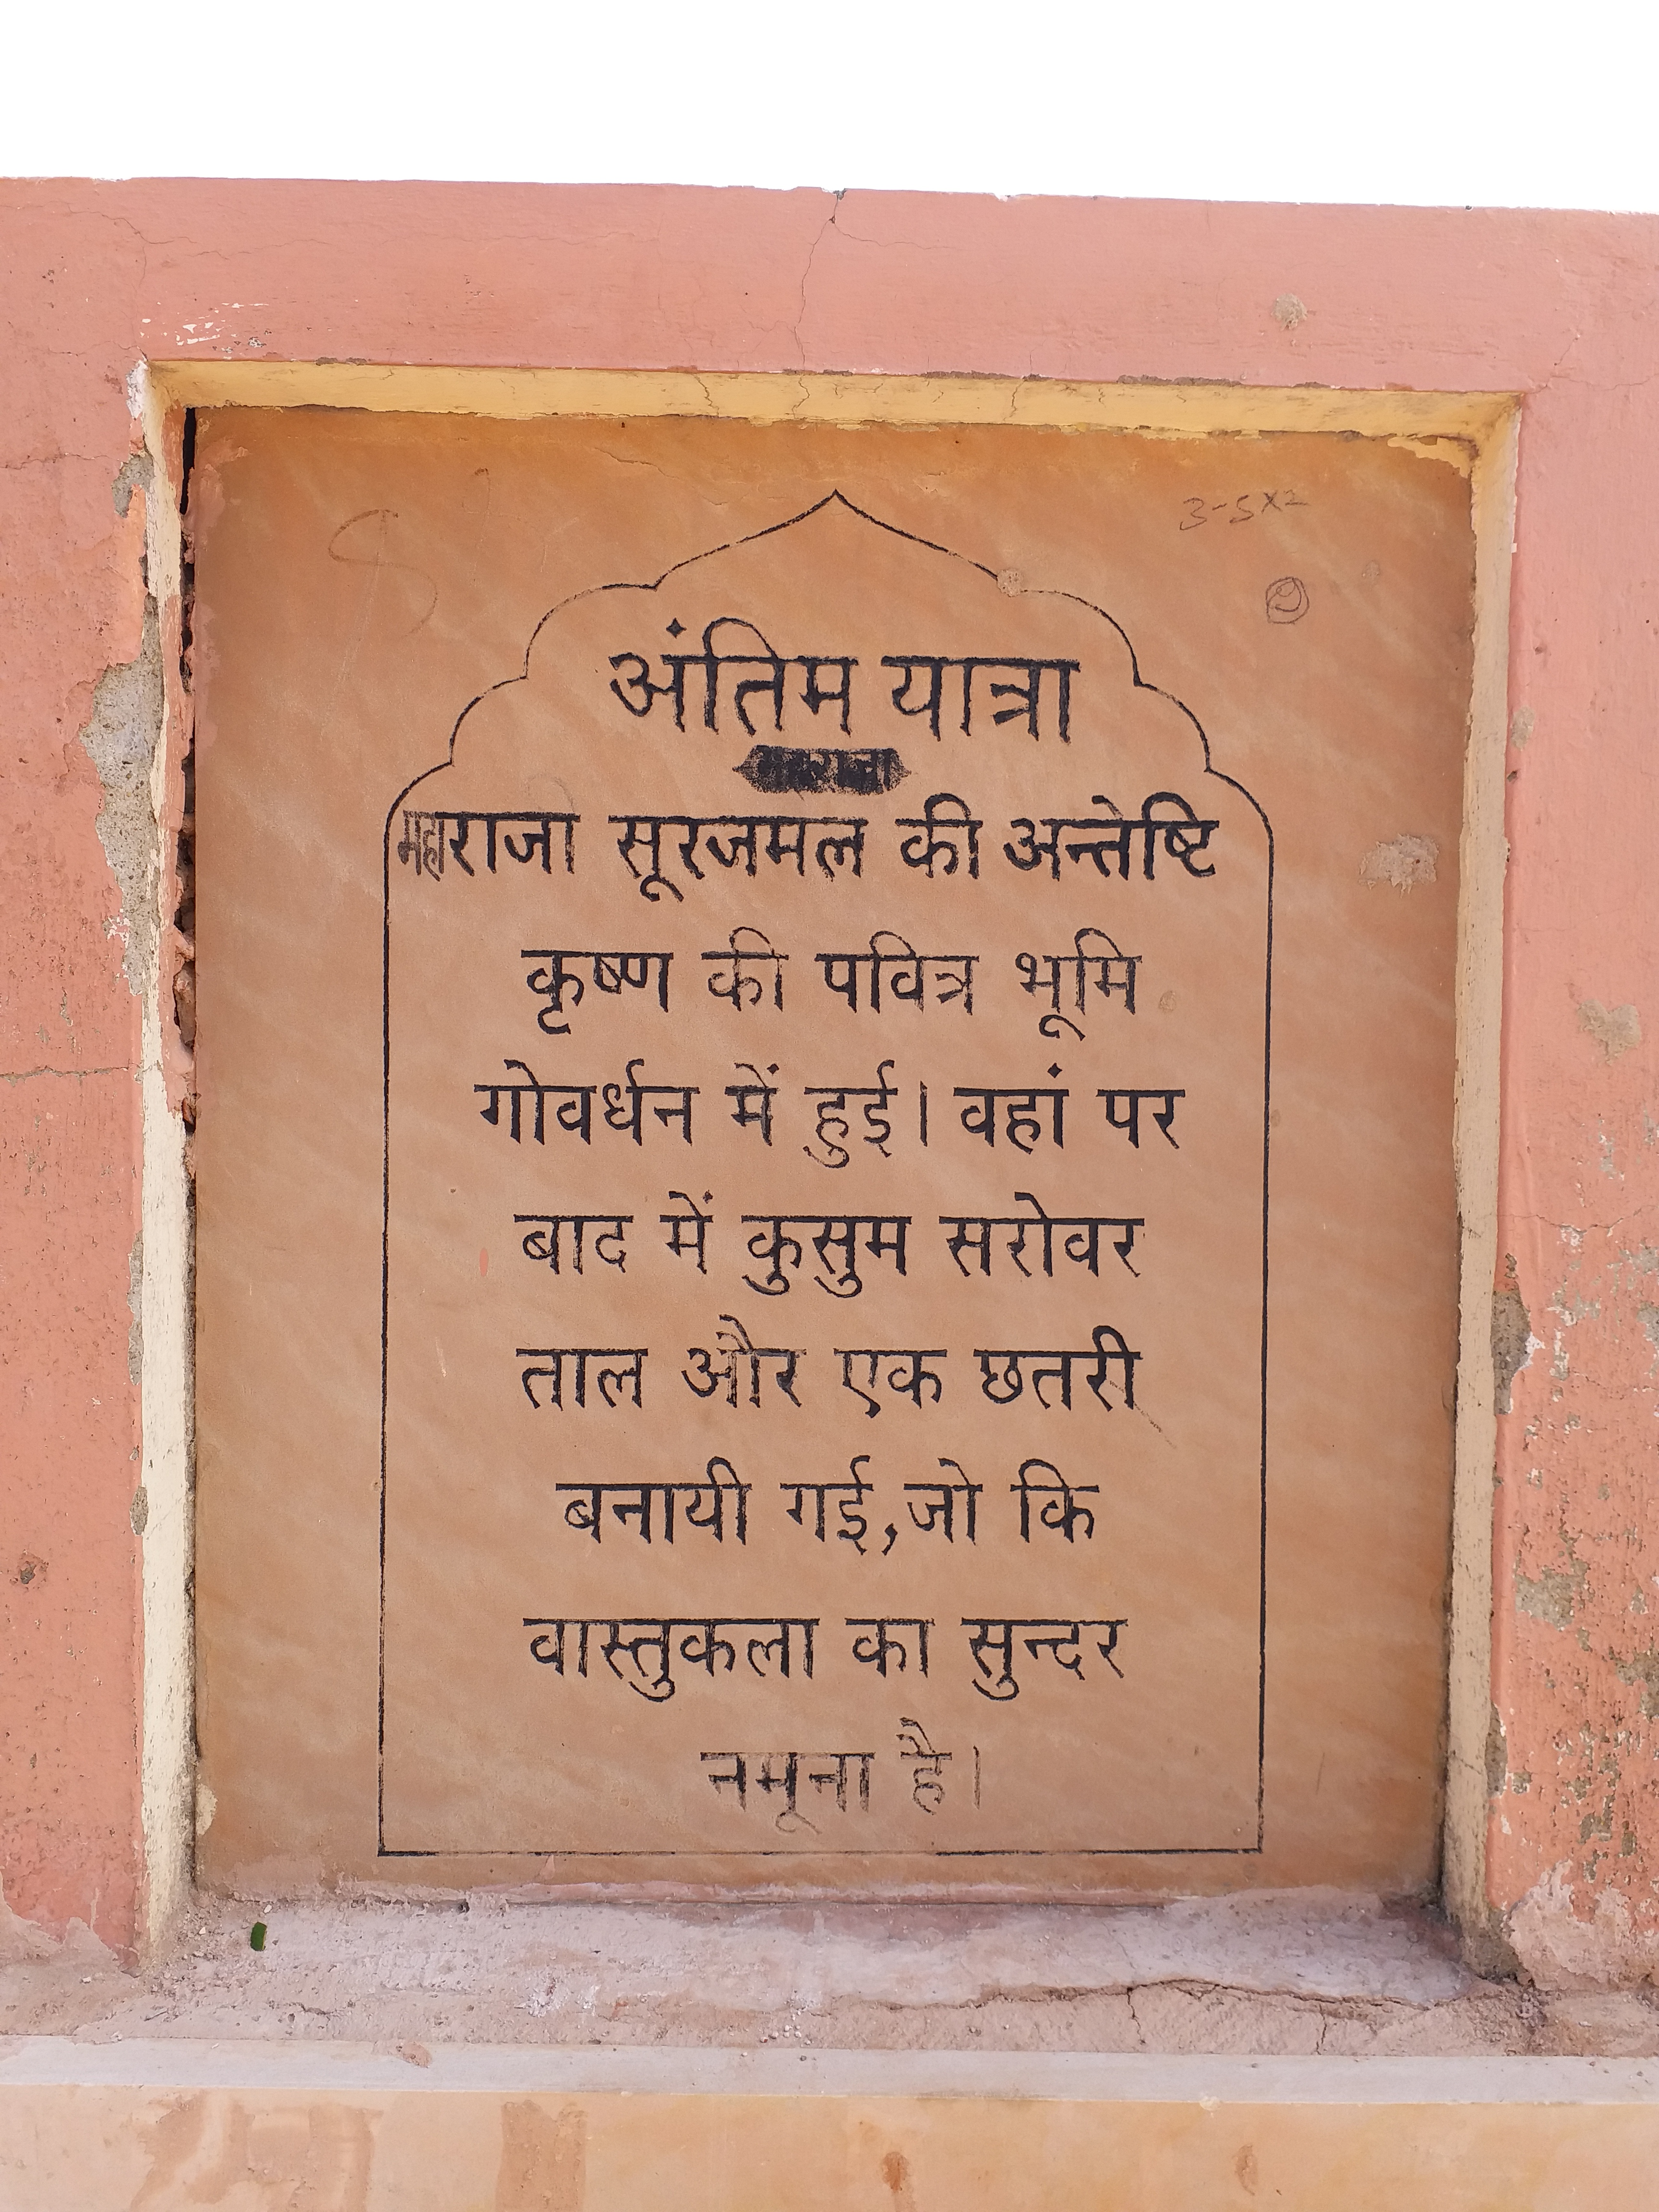 3-5x2
अंतिम यात्रा
महाराजा सूरजमल की अन्तेष्टि
कृष्ण की पवित्र भूमि
गोवर्धन में हुई। वहां पर
बाद में कुसुम सरोवर
ताल और एक छतरी
बनायी गई,जो कि
वास्तुकला का सुन्दर
नमूना है।